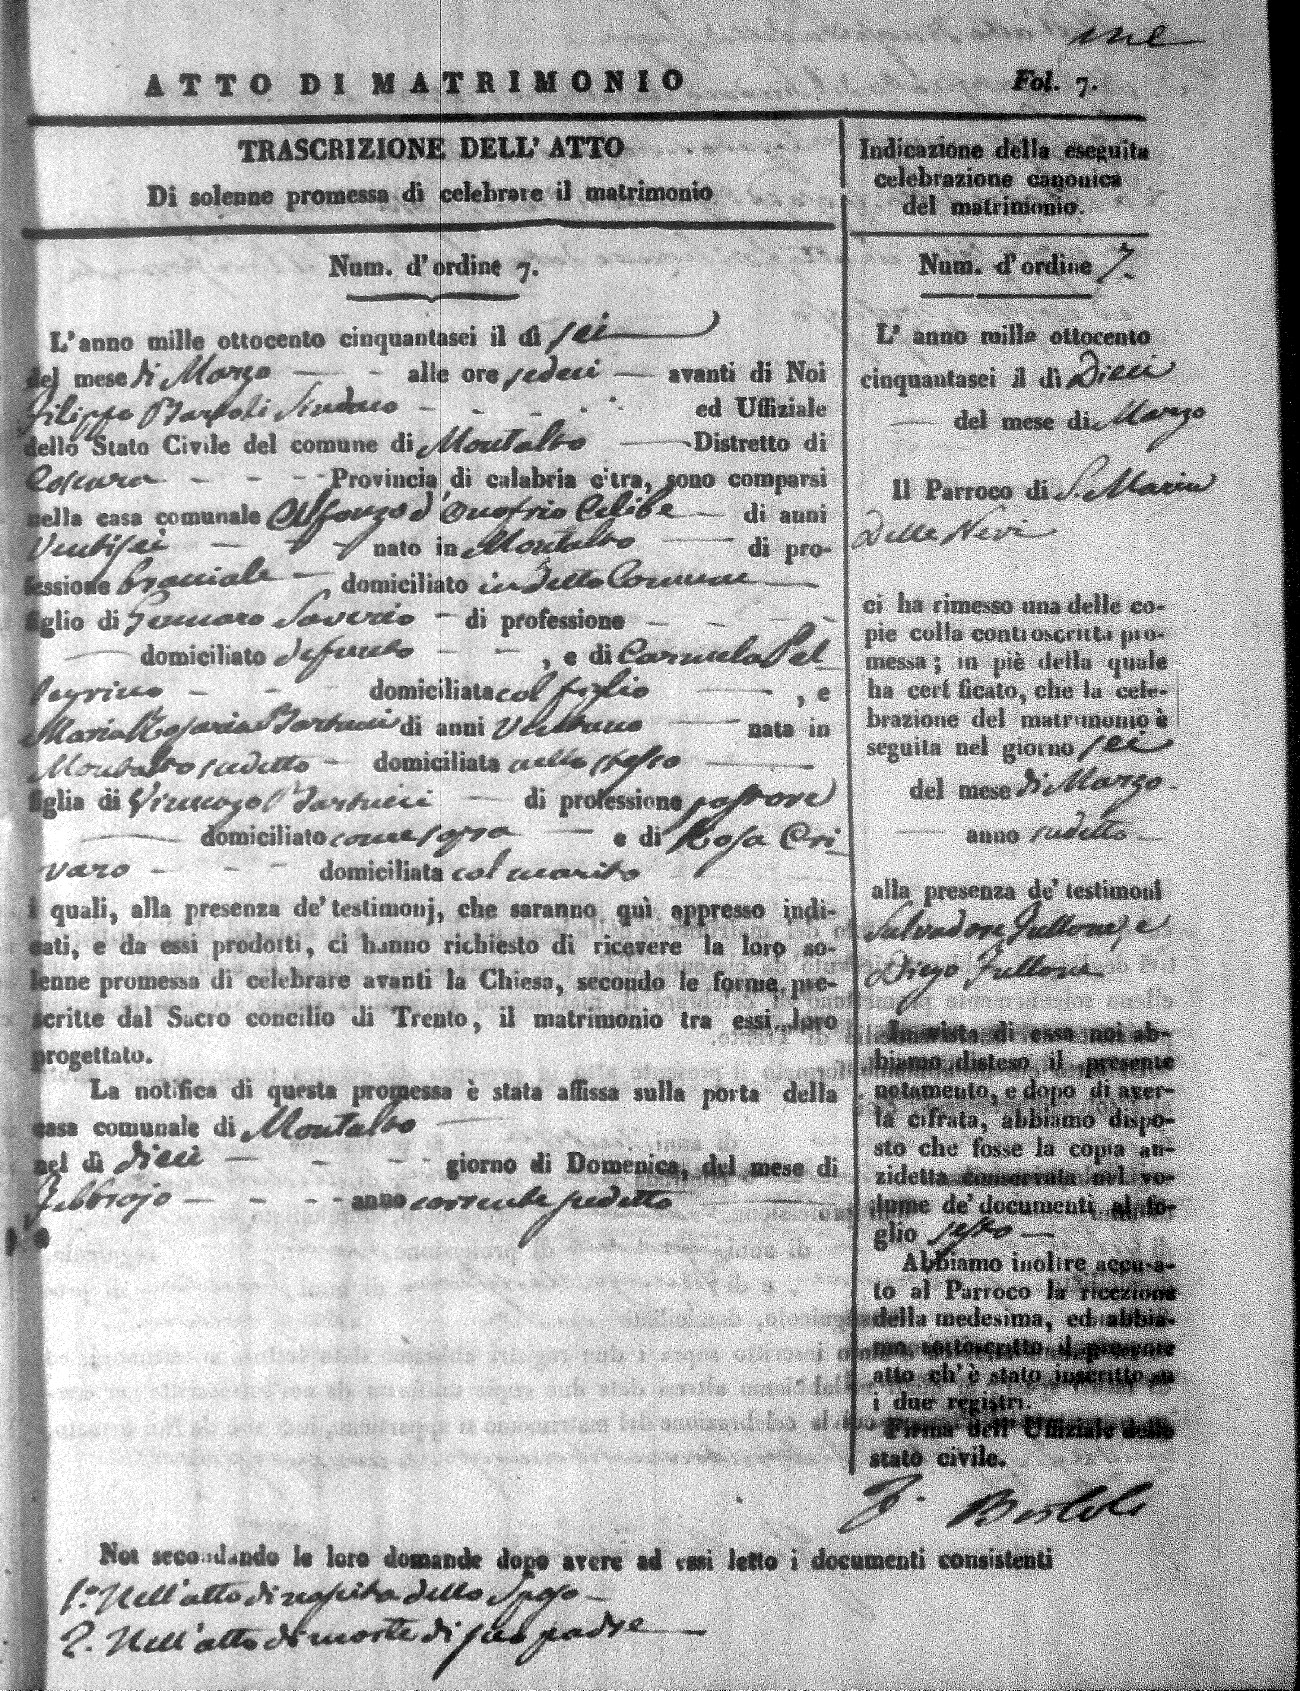 me
ATTO DI MATRIMONIO
Fol. 7.
TRASCRIZIONE DELL' ATTO
Di solenne promessa di celebrare il matrimonio
Num. d'ordine 7.
L'anno mille ottocento cinquantasei il dì sei
del mese di Marzo alle ore sedeci avanti di Noi
Filippo Bartoli Sindaco ed Uffiziale
dello Stato Civile del comune di Montalto Distretto di
Cosenza Provincia di calabria citra, sono comparsi
nella casa comunale Alfonzo d'Onofrio Celibe di anni
Ventisei nato in Montalto di pro-
fessione bracciale domiciliato in detto Comune
figlio di Gennaro Saverio di professione
domiciliato defunto , e di Carmela Pel
legrino domiciliata col figlio , e
Maria Rosaria Bartucci di anni Ventuno nata in
Montalto sudetto domiciliata nello stesso
figlia di Vincenzo Bartucci di professione pastore
domiciliato come sopra e di Rosa Cri
varo domiciliata col marito
i quali, alla presenza de' testimonj, che saranno quì appresso indi-
cati, e da essi prodotti, ci hanno richiesto di ricevere la loro so-
lenne promessa di celebrare avanti la Chiesa, secondo le forme pre-
scritte dal Sacro concilio di Trento, il matrimonio tra essi loro
progettato.
La notifica di questa promessa è stata affissa sulla porta della
casa comunale di Montalto
nel dì dieci giorno di Domenica, del mese di
Febbrajo anno corrente sudetto
Indicazione della eseguita
celebrazione canonica
del matrimonio.
Num. d'ordine 7.
L' anno mille ottocento
cinquantasei il dì Dieci
del mese di Marzo
Il Parroco di S. Maria
Delle Nevi
ci ha rimesso una delle co-
pie colla controscritta pro-
messa; in piè della quale
ha certificato, che la cele-
brazione del matrimonio è
seguita nel giorno sei
del mese di Marzo
anno sudetto
alla presenza de' testimoni
Salvadore Fullone, e
Diego Fullone
In vista di essa noi ab-
biamo disteso il presente
notamento, e dopo di aver-
la cifrata, abbiamo dispo-
sto che fosse la copia an-
zidetta conservata nel vo-
lume de' documenti al fo-
glio sesto
Abbiamo inoltre accusa-
to al Parroco la ricezione
della medesima, ed abbia-
mo sottoscritto il presente
atto ch' è stato inscritto su
i due registri.
Firma dell' Uffiziale dello
stato civile.
F. Bartoli
Noi secondando le loro domande dopo avere ad essi letto i documenti consistenti
1.° Nell'atto di nascita dello Sposo
2. Nell'atto di morte di suo padre